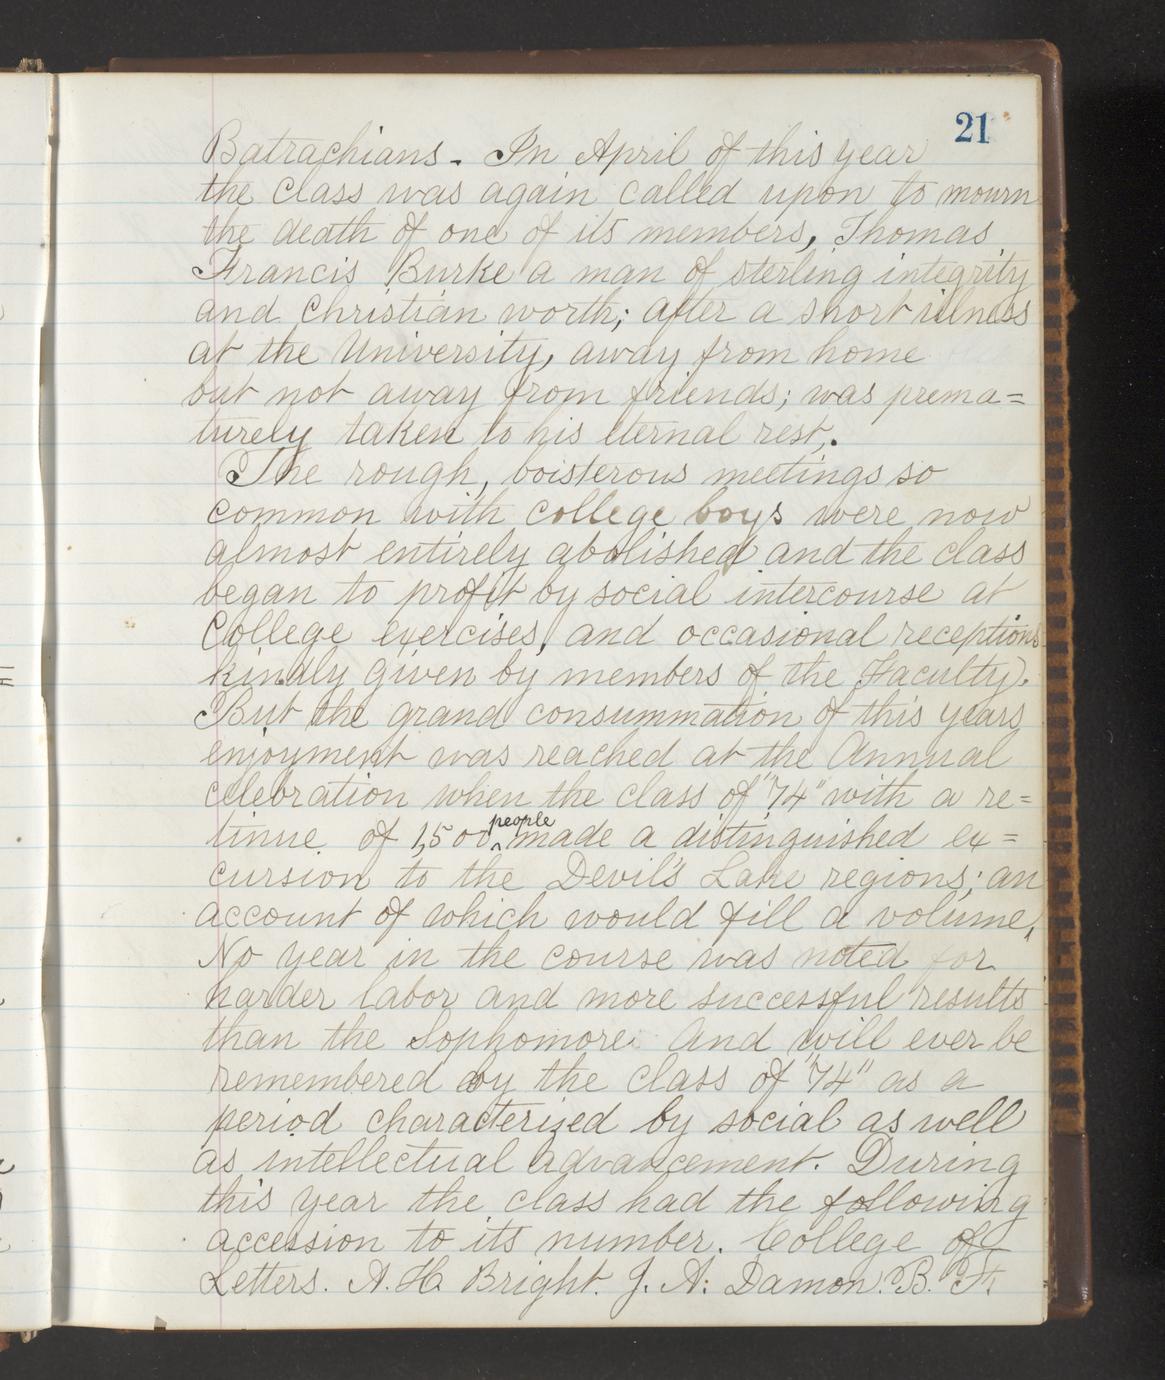 21
Batrachians. In April of this year
the class was again called upon to mourn
the death of one of its members, Thomas
Francis Burke a man of sterling integrity
and Christian worth; after a short illness
at the University, away from home
but not away from friends; was prema=
turely taken to his eternal rest.
The rough, boisterous meetings so
common with college boys were now
almost entirely abolished and the class
began to profit by social intercourse at
College exercises, and occasional receptions
kindly given by members of the Faculty.
But the grand consummation of this years
enjoyment was reached at the Annual
celebration when the class of "74" with a re=
tinue of 1,500 people made a distinguished ex=
cursion to the Devil's Lake regions; an
account of which would fill a volume,
No year in the course was noted for
harder labor and more successful results
than the Sophomore. And will ever be
remembered by the class of "74" as a
period characterized by social as well
as intellectual advancement. During
this year the class had the following
accession to its number. College of
Letters. A. H. Bright. J. A. Damon. B. F.